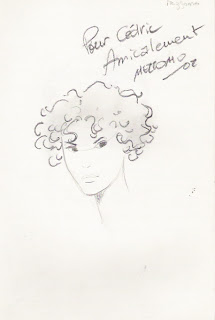 Pour Cédric
Amicalement
MEZZOMO
/02